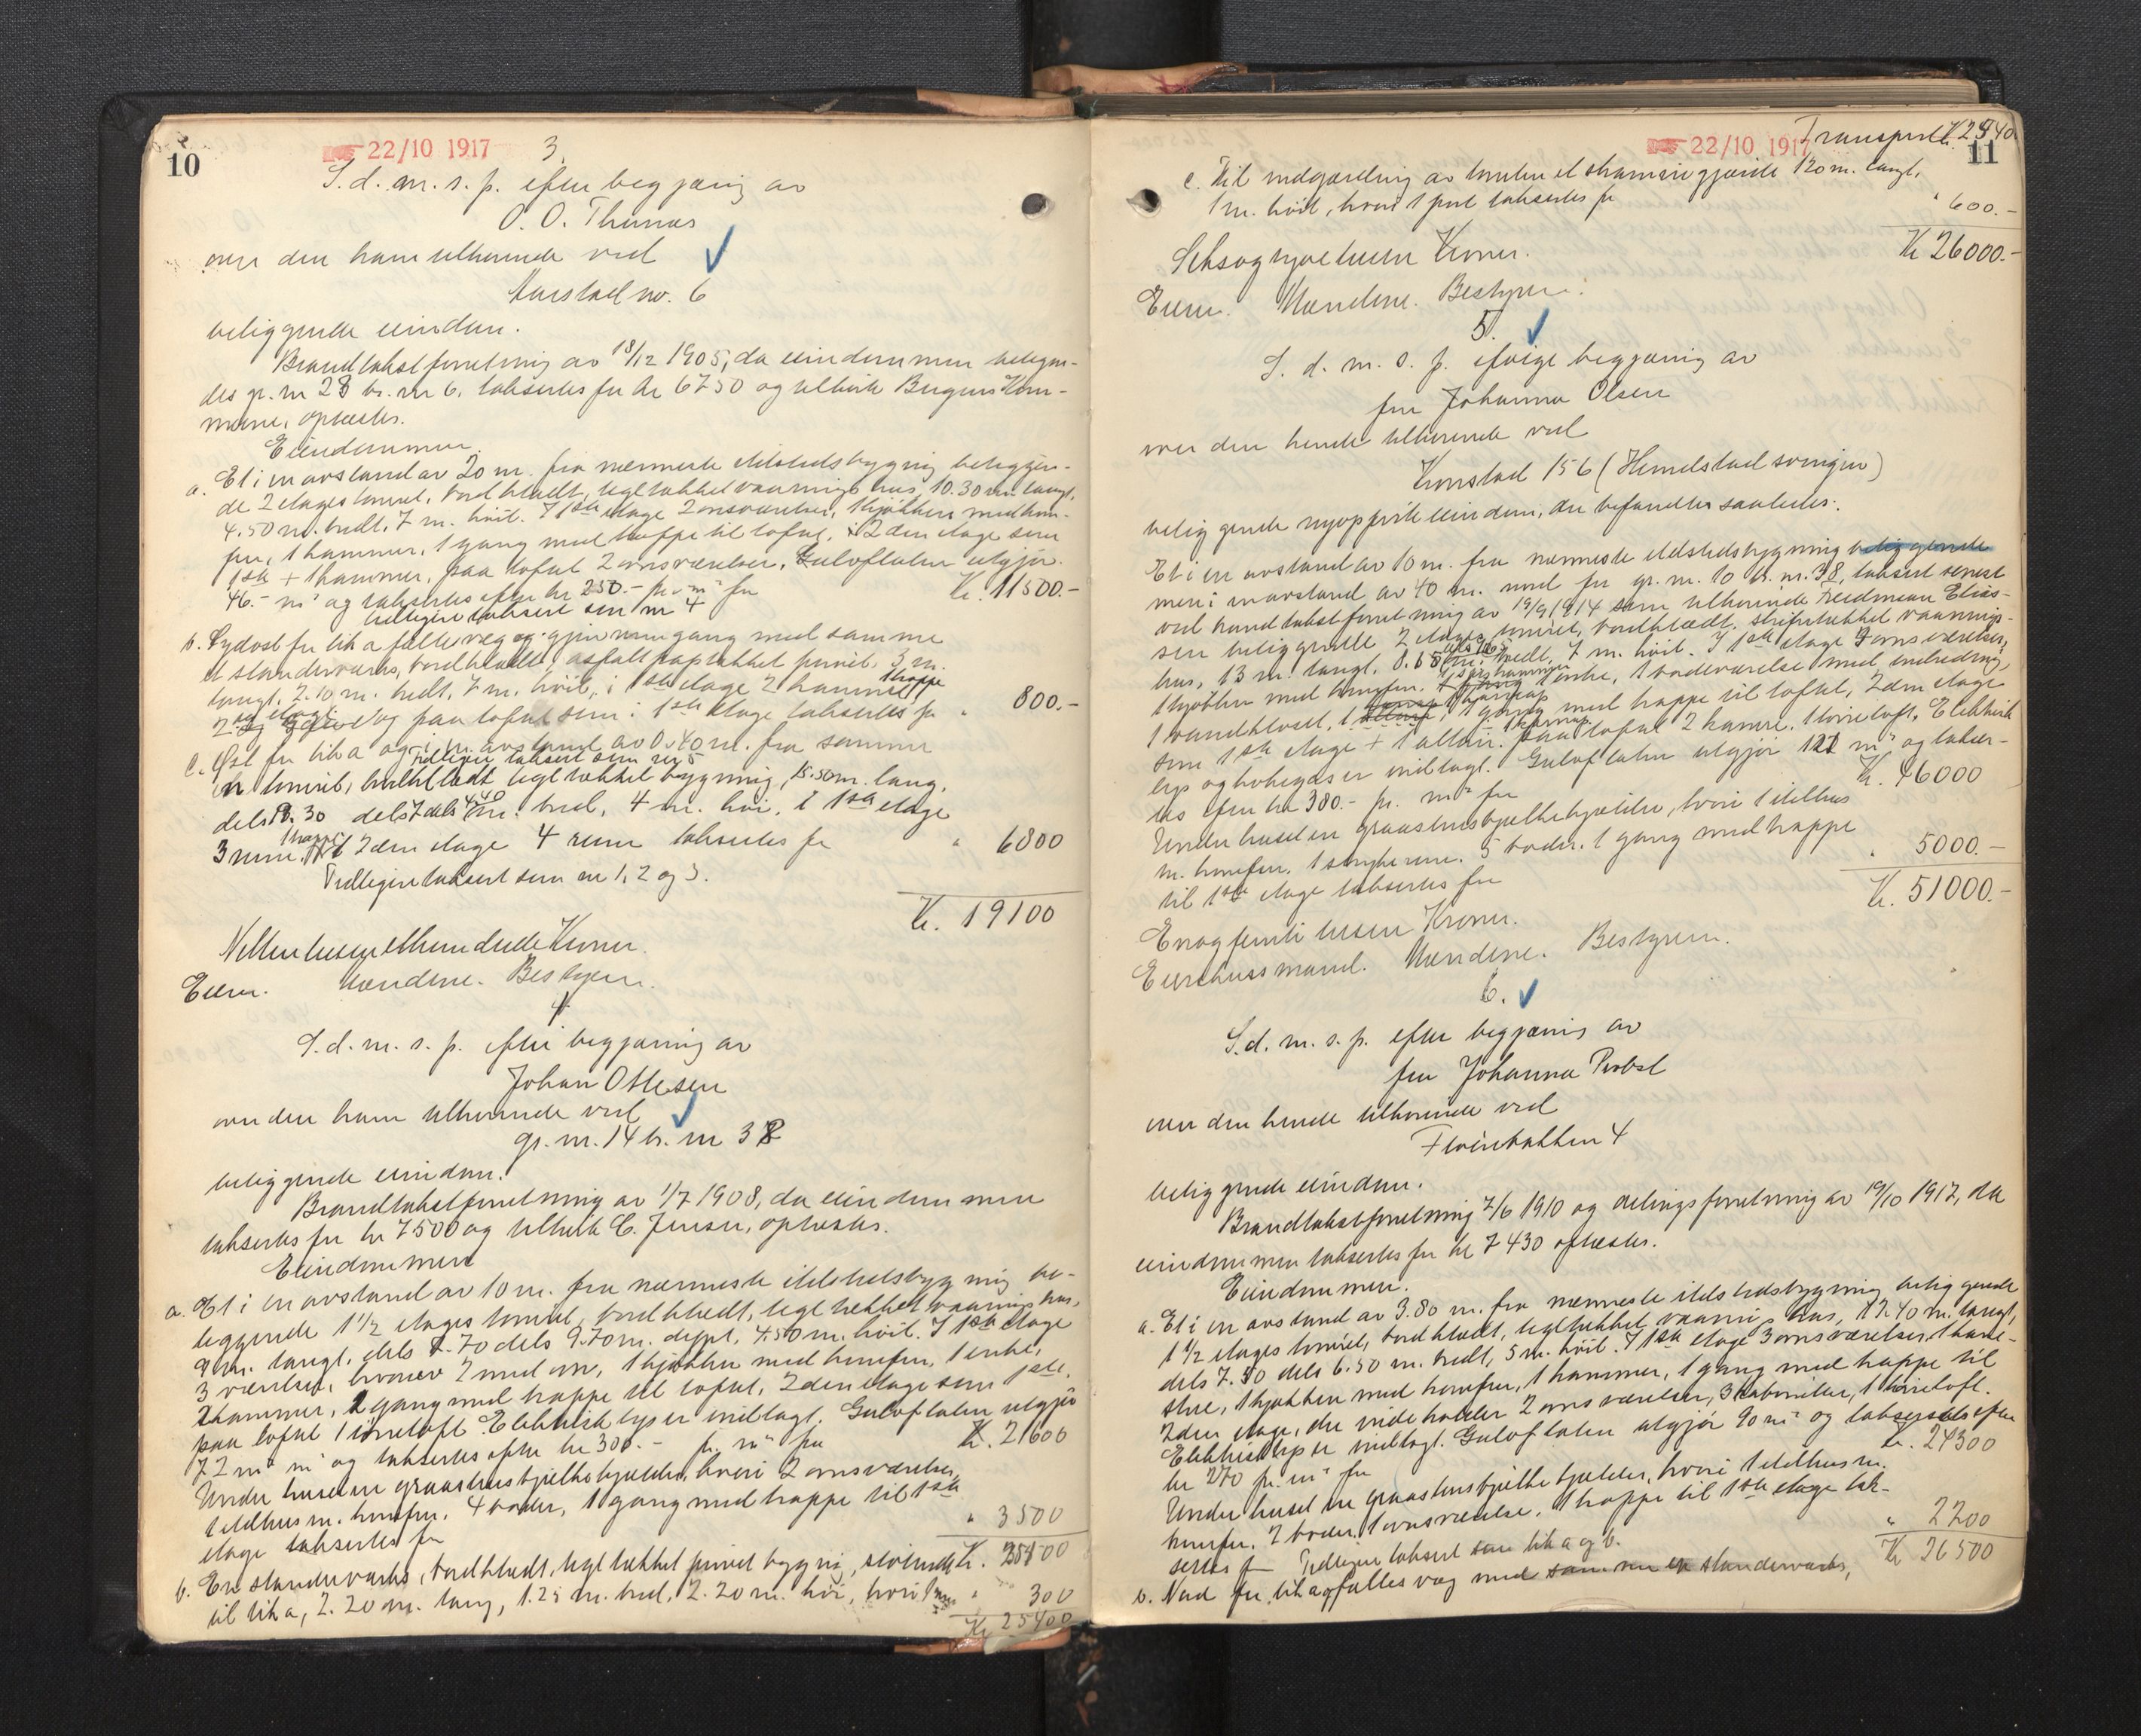 10
22/10 1917
3.
S. d. m. s. p. efter begjæring av
O. O. Thunæs
over den ham tilhørende ved
Aarstad no. 6
beliggende eiendom.
Brandtakstforretning av 18/12 1905, da eiendommen betegne-
des gr. nr 28 br. nr 6, takseertes for kr 6750 og tilhørte Bergens Kom-
mune, oplæstes.
Eiendommen
a. Et i en avstand av 20 m. fra nærmeste ildstedsbygning beliggen-
de 2 etages tømret, bordklædt, tegltækket vaaningshus, 10.30 m. langt,
4.50 m. bredt, 7 m. høit. I 1ste etage 2 ovnsværelser, 1 kjøkken med kom-
fur, 1 kammer, 1 gang med trappe til loftet, i 2den etage som
1ste + 1 kammer, paa loftet 2 ovnsværelser, Gulvflaten utgjør
46.- m² og takseertes efter kr 250.- pr. m² for Kr. 11500.-
tidligere taksert som nr 4
b. Sydost for litr a fællesvæg og gjennemgang med samme
et standerverks, bordklædt, asfaltpaptækket privét, 3 m.
langt, 2.10 m. bredt, 7 m. høit, i 1ste etage 2 kammer 1 trappe
2den etage og paa loftet som i 1ste etage taksertes for " 800.-
c. Øst for litr a og i en avstand av 0.40 m. fra samme
tidligere taksert som nr 5
en tømret, bordklædt tegltækket bygning, 15.50 m. lang,
dels 8.30 dels 7 dels 4.40 m. bred, 4 m. høi, i 1ste etage
3 rum, 1 trappe til 2den etage 4 rum taksertes for " 6800
Tidligere taksert som nr 1, 2 og 3.
Kr. 19100
Nitten tusen ethundrede Kroner.
Eieren. Mændene. Bestyren.
4
S. d. m. s. p. efter begjæring av
Johan Ottesen
over den ham tilhørende ved
gr. nr. 14 br. nr 38
beliggende eiendom.
Brandtakstforretning av 1/7 1908, da eiendommen
taksertes for kr 7500 og tilhørte C. Jensen, oplæstes.
Eiendommen
a. Et i en avstand av 10 m. fra nærmeste ildstedsbygning be-
liggende 1 1/2 etages tømret, bordklædt, tegltækket vaaningshus,
9 m. langt, dels 8.70 dels 9.70 m. dypt, 4.50 m. høit. I 1ste etage
3 værelser, hvorav 2 med ovn, 1 kjøkken med komfur, 1 entre,
2 kammer, 1 gang med trappe til loftet, 2den etage som 1ste,
paa loftet 1 tørreloft. Elektrisk lys er indlagt. Gulvflaten utgjør
72 m² og taksertes efter kr 300.- pr. m² for Kr. 21600
Under huset en graastensbjelkekjælder, hvori 2 ovnsværelser,
1 ildhus m. komfur, 4 boder, 1 gang med trappe til 1ste
etage taksertes for " 3500
Kr. 25100
b. En standerverks, bordklædt, tegltækket privet bygning, støtende
til litr a, 2.20 m. lang, 1.25 m. bred, 2.20 m. høi, hvori 1 rum " 300
Kr 25400
11
22/10 1917
Transport Kr. 25400
c. Til indgjærding av tomten et stramineigjærde 120 m. langt,
1 m. høit, hvori 1 port taksertes for " 600.-
Kr 26000.-
Seksogtyvetusen Kroner.
Eieren. Mændene. Bestyren.
5.
S. d. m. s. p. ifølge begjæring av
fru Johanna Olsen
over den hende tilhørende ved
Kronstad 156 (Heimelstadsvingen)
beliggende nyopførte eiendom, der befandtes saaledes:
Et i en avstand av 10 m. fra nærmeste ildstedsbygning beliggende
men i en avstand av 40 m. nord for gr. nr. 10 br. nr. 38, taksert senest
ved brandtakstforretning av 19/9 1914 som tilhørende Fredman Elias-
sen beliggende 2 etages tømret, bordklædt, skifertækket vaanings-
hus, 13 m. langt, 8.65 m. bredt, 7 m. høit. I 1ste etage 3 ovnsværelser,
1 kjøkken med komfur, 1 spiskammer, 1 entre, 1 badeværelse med indredning,
1 vandkloset, 1 gang med trappe til loftet, 2den etage
som 1ste etage + 1 altan. Paa loftet 2 kamre, 1 tørreloft. Elektrisk
lys og kokegas er indlagt. Gulvflaten utgjør 121 m² og takser-
tes efter kr 380.- pr. m² for Kr. 46000
Under huset en graastensbjelkekjælder, hvori 1 ildhus
m. komfur, 1 strykerum, 5 boder, 1 gang med trappe
til 1ste etage taksertes for " 5000.-
Kr. 51000.-
Enogfemti tusen Kroner.
Eierens mand. Mændene. Bestyren.
6.
S. d. m. s. p. efter begjæring av
fru Johanna Probst
over den hende tilhørende ved
Fløienbakken 4
beliggende eiendom.
Brandtakstforretning 7/6 1910 og delingsforretning av 19/10 1917, da
eiendommen taksertes for kr 7430 oplæstes.
Eiendommen.
a. Et i en avstand av 3.80 m. fra nærmeste ildstedsbygning beliggende
1 1/2 etages tømret, bordklædt, tegltækket vaaningshus, 12.40 m. langt,
dels 7.30 dels 6.50 m. bredt, 5 m. høit. I 1ste etage 3 ovnsværelser, 1 bade-
stue, 1 kjøkken med komfur, 1 kammer, 1 gang med trappe til
2den etage, der indeholder 2 ovnsværelser, 3 kabinetter, 1 tørreloft.
Elektrisk lys er indlagt. Gulvflaten utgjør 90 m² og taksertes efter
kr 270 pr. m² for Kr. 24300
Under huset en graastensbjelkekjælder, hvori 1 ildhus m.
komfur, 2 boder, 1 ovnsværelse, 1 trappe til 1ste etage tak-
sertes for " 2200
Tidligere taksert som litr a og b.
Kr 26500
b. Nord for litr a og fælles væg med samme en standerverks,